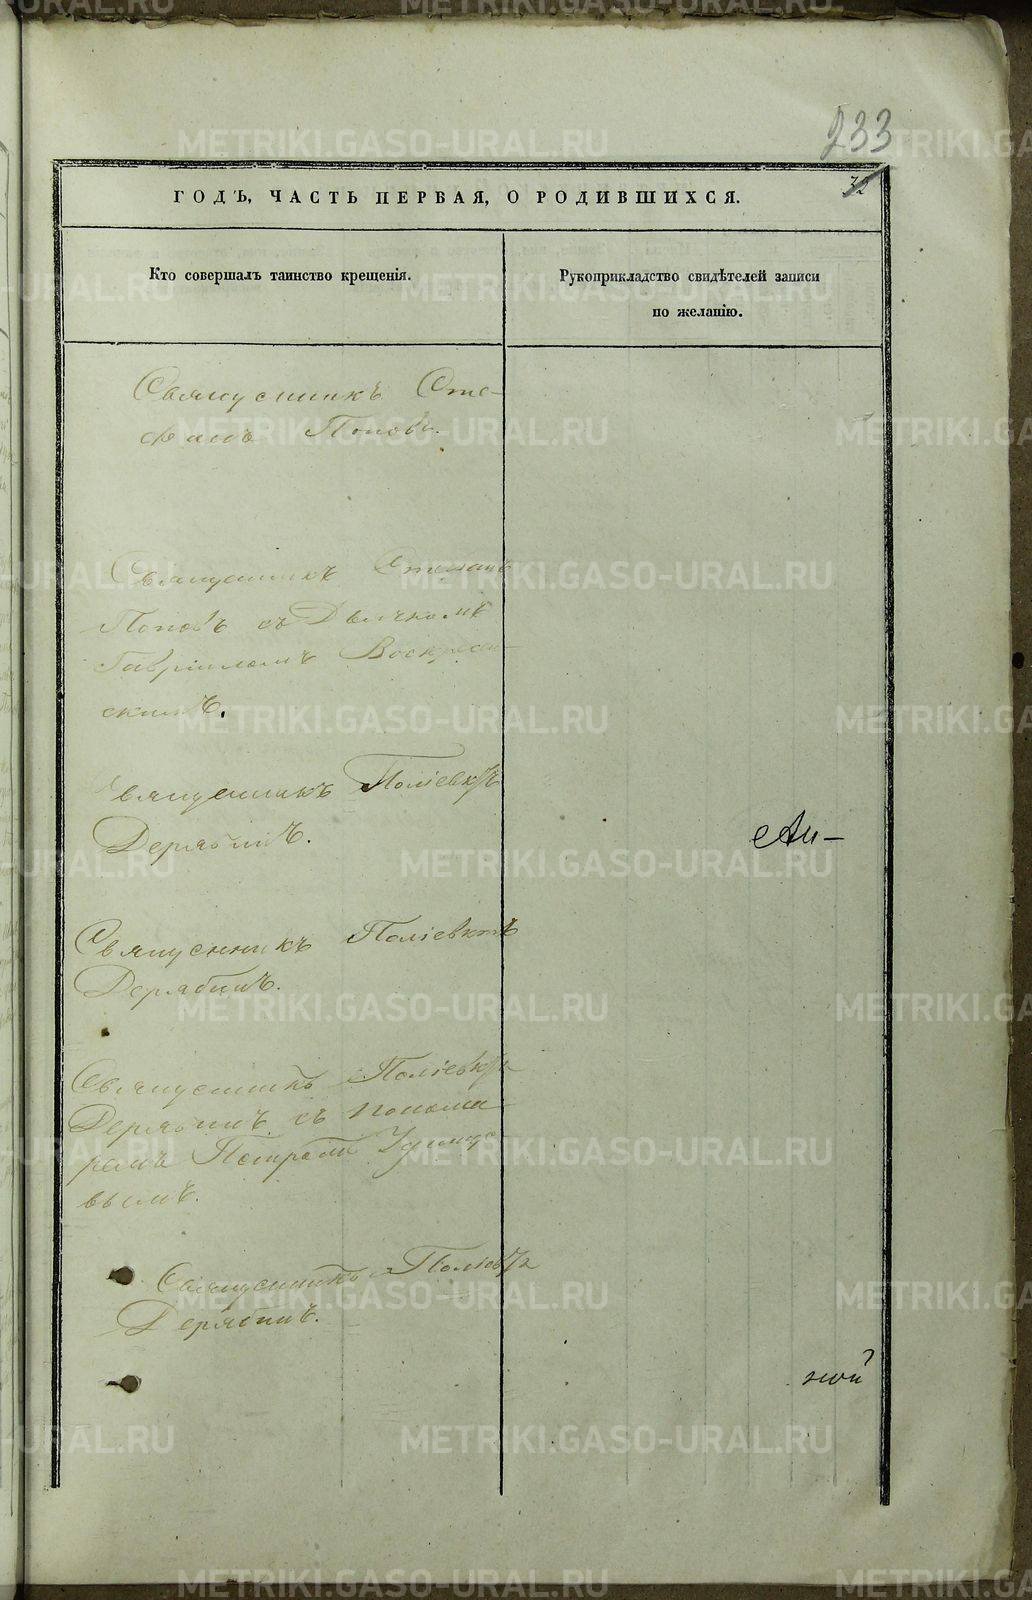 233
32
ГОДЪ, ЧАСТЬ ПЕРВАЯ, О РОДИВШИХСЯ.
Кто совершалъ таинство крещенія.
Рукоприкладство свидѣтелей записи
по желанію.
Священникъ Сте-
фанъ Поповъ.
Священникъ Стефанъ
Поповъ съ Дьячкомъ
Гавріиломъ Воскресен-
скимъ.
Священникъ Поліевктъ
Дерябинъ.
Ан-
Священникъ Поліевктъ
Дерябинъ.
Священникъ Поліевктъ
Дерябинъ съ понома
ремъ Петромъ
вымъ.
Священникъ Поліевктъ
Дерябинъ.
ной
METRIKI.GASO-URAL.RU